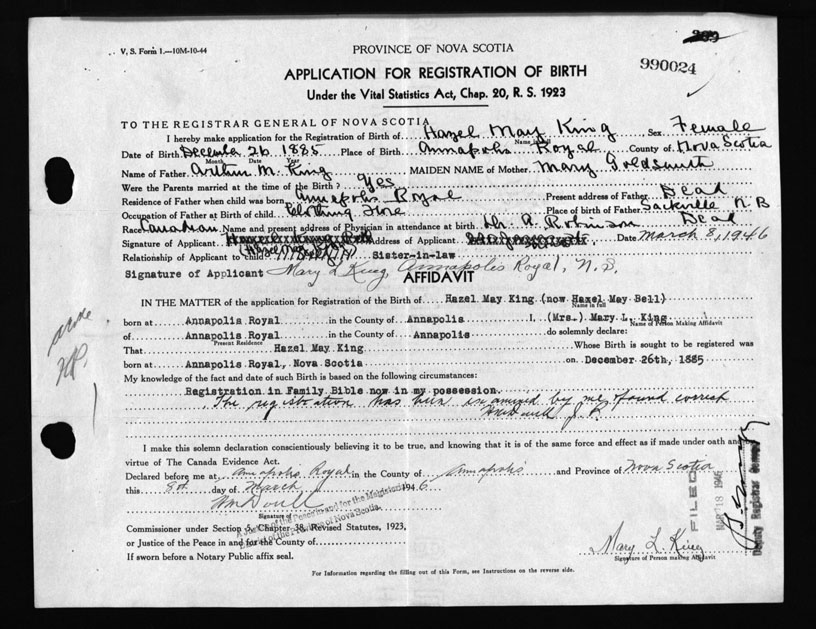 V. S. Form 1.—10M-10-44
PROVINCE OF NOVA SCOTIA
990024
APPLICATION FOR REGISTRATION OF BIRTH
Under the Vital Statistics Act, Chap. 20, R. S. 1923
TO THE REGISTRAR GENERAL OF NOVA SCOTIA
I hereby make application for the Registration of Birth of Hazel May King Sex Female
Name in full
Date of Birth December 26 1885 Place of Birth Annapolis Royal County of Nova Scotia
Month Date Year
Name of Father Arthur M. King MAIDEN NAME of Mother Mary Goldsmith
Were the Parents married at the time of the Birth? Yes
Residence of Father when child was born Annapolis Royal Present address of Father Dead
Occupation of Father at Birth of child Clothing Store Place of birth of Father Sackville N.B
Race Canadian Name and present address of Physician in attendance at birth Dr. A. Robinson Dead
Signature of Applicant Address of Applicant Date March 8, 1946
Relationship of Applicant to child Sister-in-law
Signature of Applicant Mary L King, Annapolis Royal, N.S.
AFFIDAVIT
IN THE MATTER of the application for Registration of the Birth of Hazel May King (now Hazel May Bell)
Name in full
born at Annapolis Royal in the County of Annapolis I, (Mrs.) Mary L. King
Name of Person Making Affidavit
of Annapolis Royal in the County of Annapolis do solemnly declare:
Present Residence
That Hazel May King Whose Birth is sought to be registered was
born at Annapolis Royal, Nova Scotia on December 26th, 1885
My knowledge of the fact and date of such Birth is based on the following circumstances:
Registration in Family Bible now in my possession.
The registration has been examined by me & found correct
J.P.
I make this solemn declaration conscientiously believing it to be true, and knowing that it is of the same force and effect as if made under oath and by
virtue of The Canada Evidence Act.
Declared before me at Annapolis Royal in the County of Annapolis and Province of Nova Scotia
this 8th day of March 1946
Signature of
Commissioner under Section 5, Chapter 38, Revised Statutes, 1923,
or Justice of the Peace in and for the County of
If sworn before a Notary Public affix seal.
FILED
MAR 18 1946
Deputy Registrar General
Mary L King
Signature of Person making Affidavit
For Information regarding the filling out of this Form, see Instructions on the reverse side.